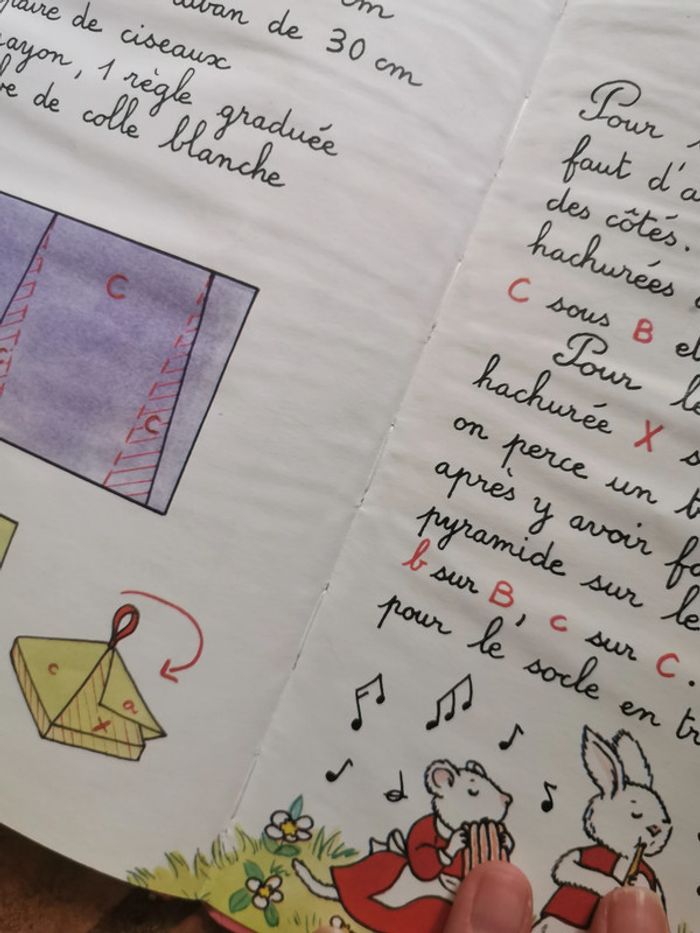 cm
ruban de 30 cm
paire de ciseaux
crayon, 1 règle graduée
de colle blanche
C
C
c
a
X
Pour
faut d'a
des côtés.
hachurées
C sous B et
Pour le
hachurée X s
on perce un t
après y avoir fa
pyramide sur le
b sur B, c sur C.
pour le socle en tr